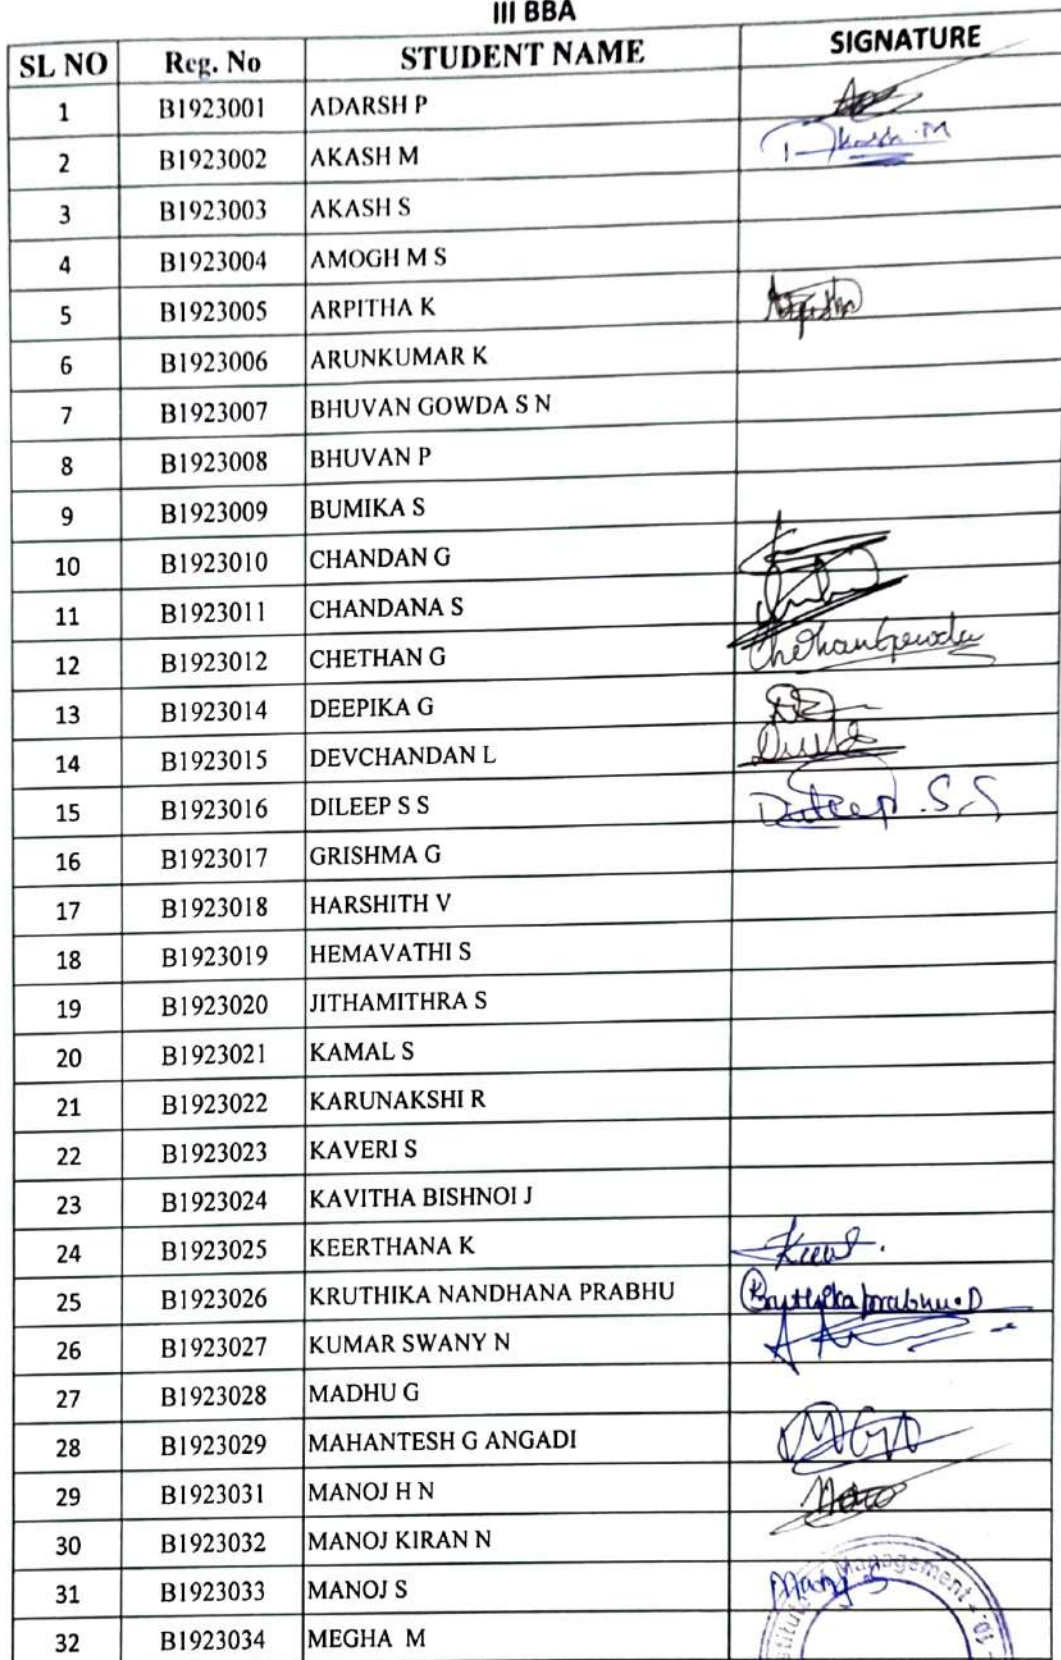 III BBA
SL NO Reg. No STUDENT NAME SIGNATURE
1 B1923001 ADARSH P
2 B1923002 AKASH M Akash.M
3 B1923003 AKASH S
4 B1923004 AMOGH M S
5 B1923005 ARPITHA K Arpitha
6 B1923006 ARUNKUMAR K
7 B1923007 BHUVAN GOWDA S N
8 B1923008 BHUVAN P
9 B1923009 BUMIKA S
10 B1923010 CHANDAN G
11 B1923011 CHANDANA S
12 B1923012 CHETHAN G ChethanGowda
13 B1923014 DEEPIKA G
14 B1923015 DEVCHANDAN L
15 B1923016 DILEEP S S Dileep .S.S
16 B1923017 GRISHMA G
17 B1923018 HARSHITH V
18 B1923019 HEMAVATHI S
19 B1923020 JITHAMITHRA S
20 B1923021 KAMAL S
21 B1923022 KARUNAKSHI R
22 B1923023 KAVERI S
23 B1923024 KAVITHA BISHNOI J
24 B1923025 KEERTHANA K
25 B1923026 KRUTHIKA NANDHANA PRABHU Kruthika prabhu.D
26 B1923027 KUMAR SWANY N
27 B1923028 MADHU G
28 B1923029 MAHANTESH G ANGADI
29 B1923031 MANOJ H N
30 B1923032 MANOJ KIRAN N
31 B1923033 MANOJ S Manoj S
32 B1923034 MEGHA M
Management